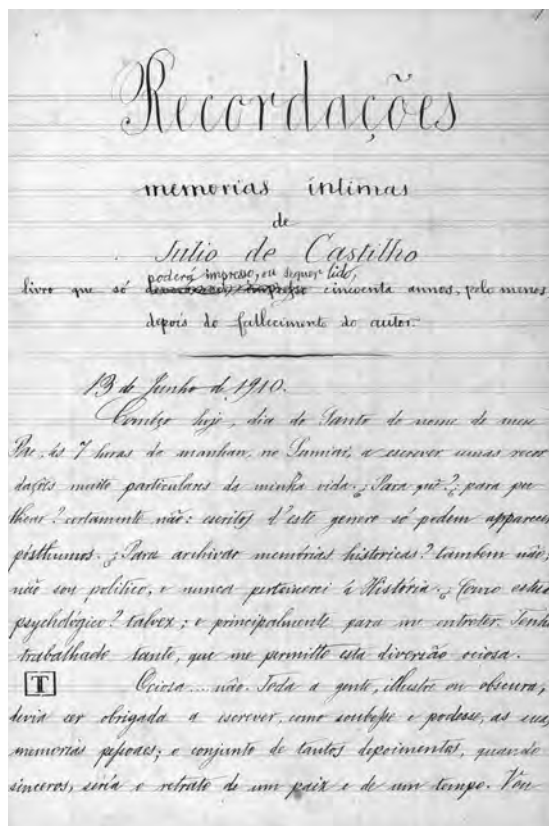 Recordações
memorias intimas
de
Julio de Castilho
poderá impresso, ou sequer lido,
livro que só cincoenta annos, pelo menos
depois do fallecimento do autor.
13 de Junho de 1910.
Começo hoje, dia do Santo do nome de meu
Pae, ás 7 horas da manhan, no Lumiar, a escrever umas recor
dações muito particulares da minha vida. ¿Para quê? ¿para pu
blicar? certamente não: escritos d'este genero só podem apparecer
pósthumos. ¿Para archivar memórias historicas? tambem não;
não sou politico, e nunca pertencerei á História. ¿Como estudo
psychológico? talvez; e principalmente para me entreter. Tenho
trabalhado tanto, que me permitto esta diversão ociosa.
T Ociosa... não. Toda a gente, illustre ou obscura,
devia ser obrigada a escrever, como soubesse e podesse, as suas
memorias pessoaes; o conjunto de tantos depoimentos, quando
sinceros, seria o retrato de um paiz e de um tempo. Vou